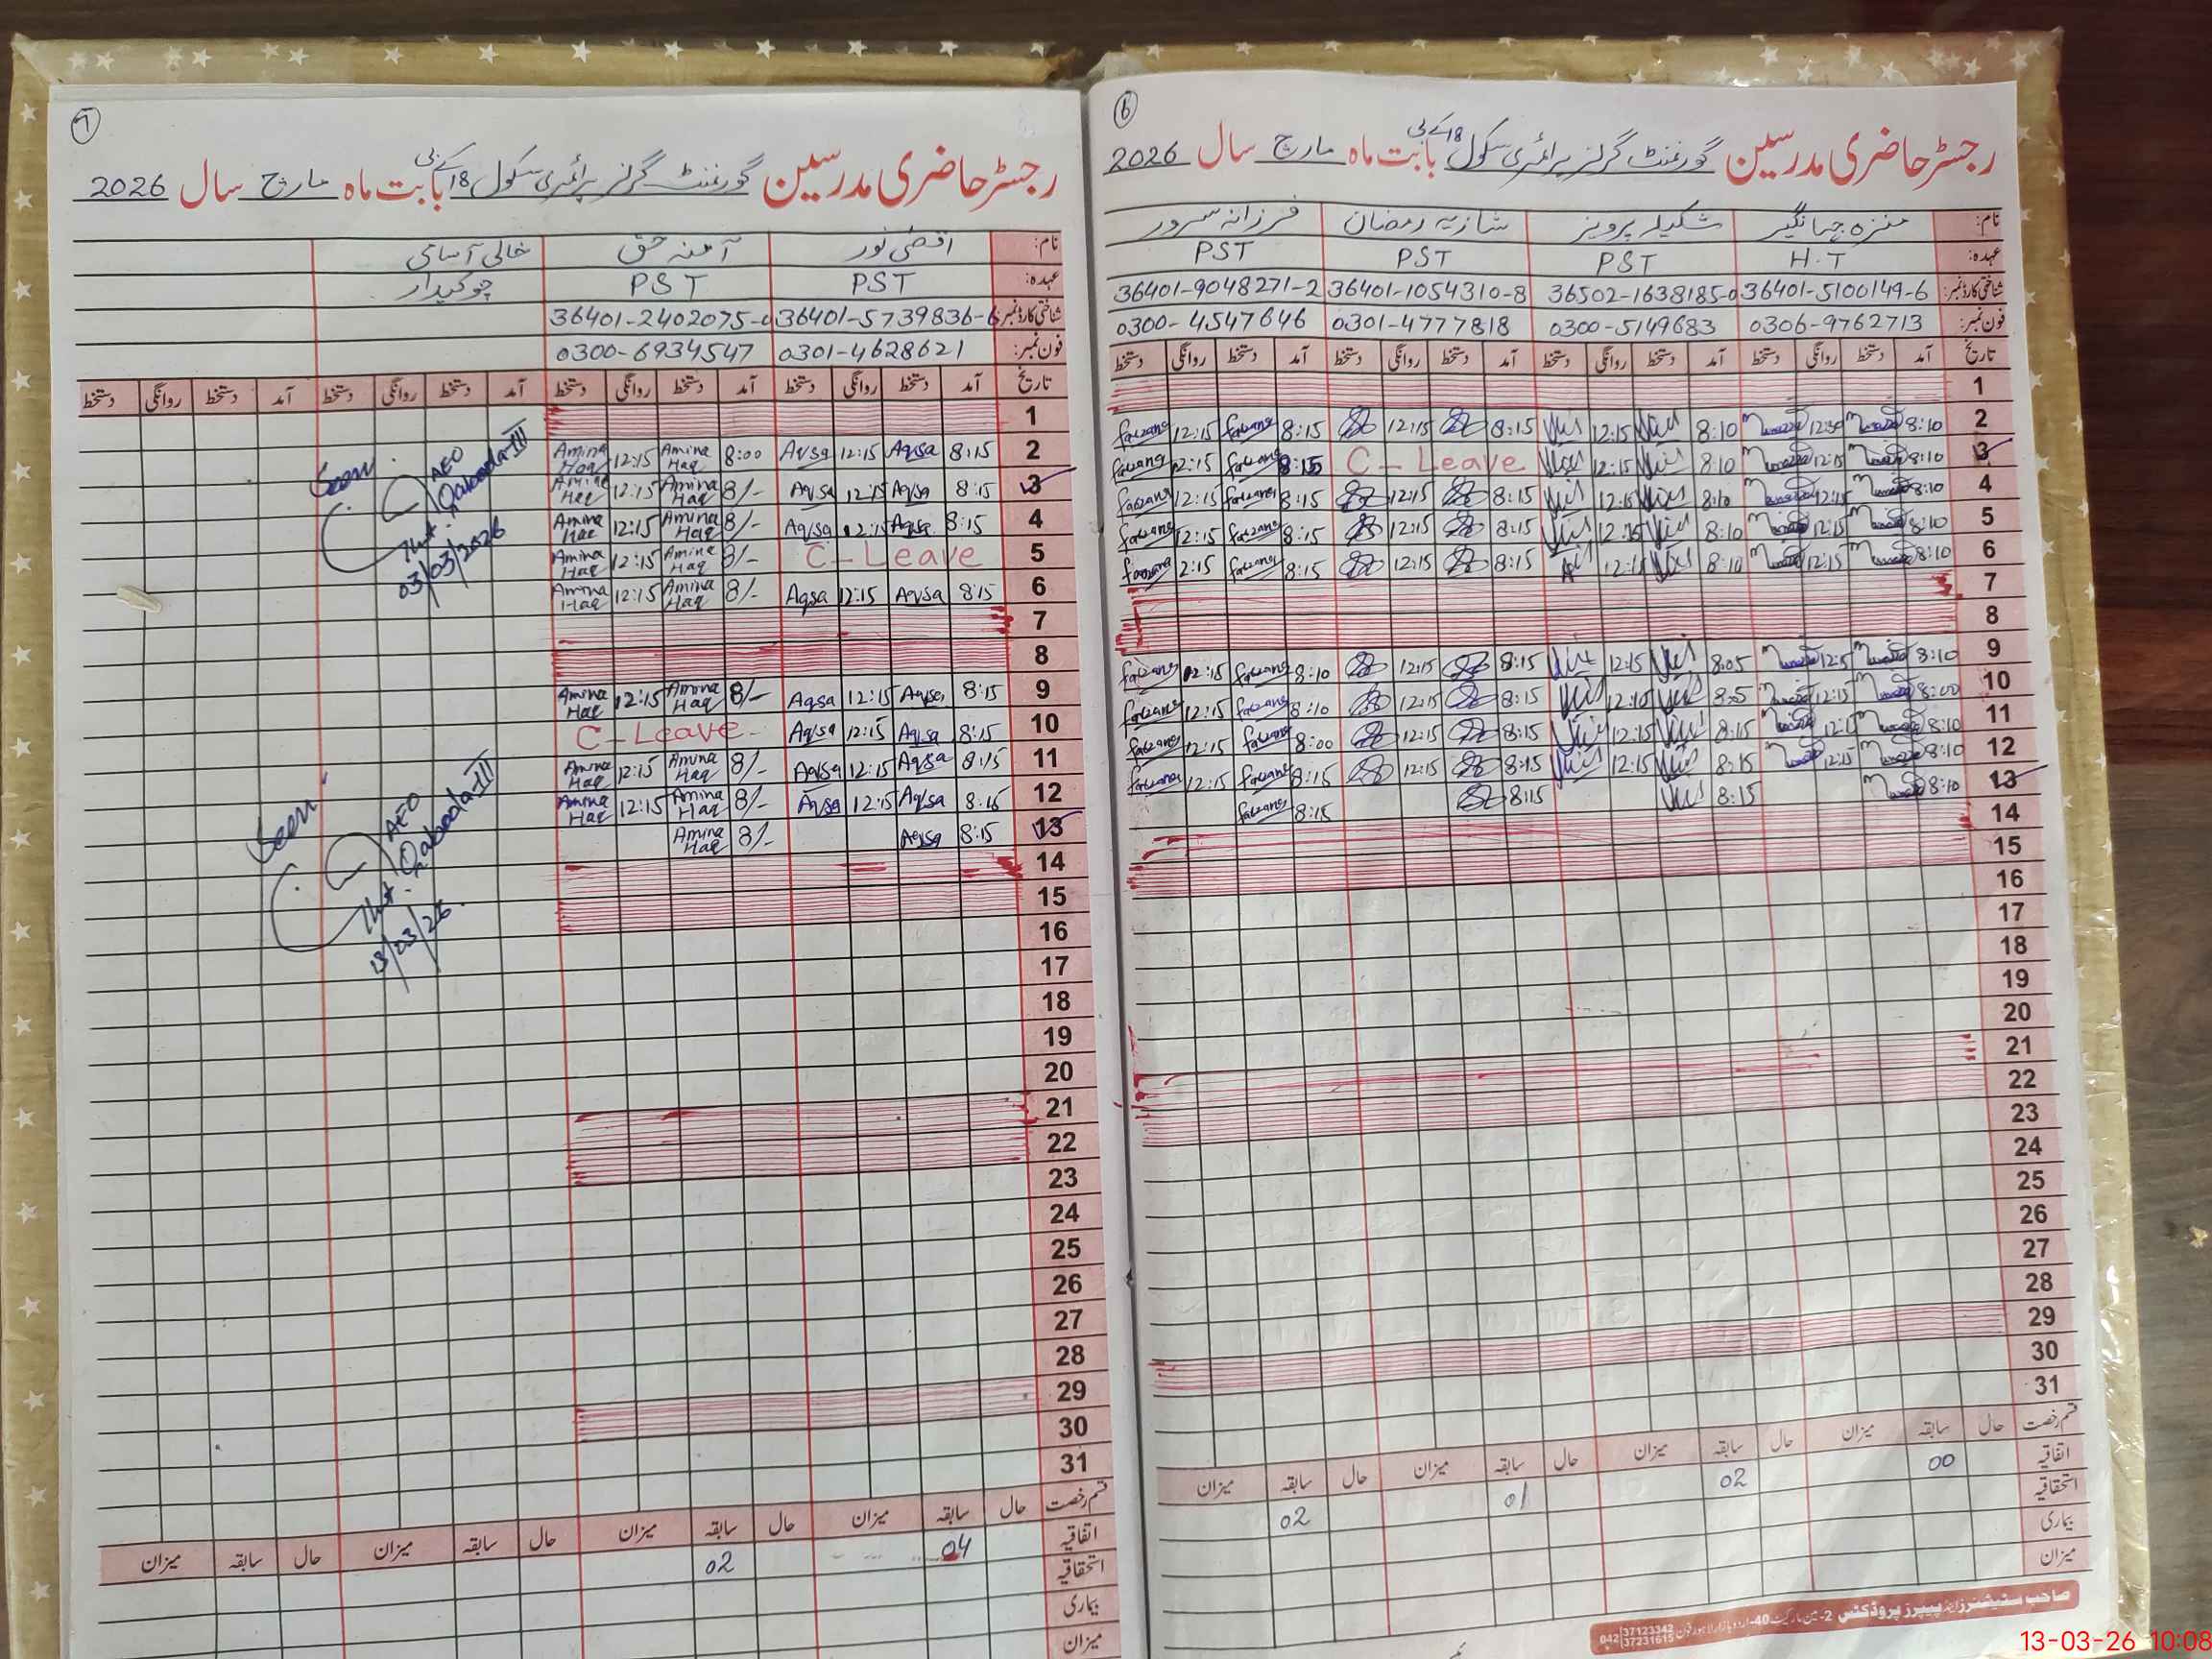 6
رجسٹر حاضری مدرسین گورنمنٹ گرلز پرائمری سکول 18 کے بی بابت ماہ مارچ سال 2026
نام: منزہ جہانگیر شکیلہ پرویز شازیہ رمضان فرزانہ سرور
عہدہ: H.T PST PST PST
شناختی کارڈ نمبر: 36401-5100149-6 36502-1638185-0 36401-1054310-8 36401-9048271-2
فون نمبر: 0306-9762713 0300-5149683 0301-4777818 0300-4547646
تاریخ آمد دستخط روانگی دستخط آمد دستخط روانگی دستخط آمد دستخط روانگی دستخط آمد دستخط روانگی دستخط
1
2 8:10 12:30 8:10 12:15 8:15 12:15 8:15 12:15
3 8:10 12:15 8:10 12:15 C-Leave 8:15 12:15
4 8:10 12:15 8:10 12:15 8:15 12:15 8:15 12:15
5 8:10 12:15 8:10 12:15 8:15 12:15 8:15 12:15
6 8:10 12:15 8:10 8:15 12:15 8:15 2:15
7
8
9 8:10 8:05 12:15 8:15 12:15 8:10 12:15
10 8:00 12:15 12:10 8:15 12:15 8:10 12:15
11 8:10 8:15 12:15 8:15 12:15 8:00 12:15
12 8:10 12:15 8:15 12:15 8:15 12:15 8:15 12:15
13 8:10 8:15 8:15 8:15
14
15
16
17
18
19
20
21
22
23
24
25
26
27
28
29
30
31
قسم رخصت حال سابقہ میزان حال سابقہ میزان حال سابقہ میزان حال سابقہ میزان
اتفاقیہ 00 02 01 02
استحقاقیہ
بیماری
میزان
صاحب سٹیشنرز اینڈ پیپرز پروڈکٹس 2-مین مارکیٹ 40-اردو بازار لاہور فون 042 37123342 37231615
7
رجسٹر حاضری مدرسین گورنمنٹ گرلز پرائمری سکول 18 کے بی بابت ماہ مارچ سال 2026
نام: اقصٰی نور آمنہ حق خالی آسامی
عہدہ: PST PST چوکیدار
شناختی کارڈ نمبر: 36401-5739836-6 36401-2402075-
فون نمبر: 0301-4628621 0300-6934547
تاریخ آمد دستخط روانگی دستخط آمد دستخط روانگی دستخط آمد دستخط روانگی دستخط آمد دستخط روانگی دستخط
1
2 8:15 Aqsa 12:15 Aqsa 8:00 Amina Haq 12:15 Amina Haq
3 8:15 Aqsa 12:15 Aqsa 8/- Amina Haq 12:15 Amina Haq
4 8:15 Aqsa 12:15 Aqsa 8/- Amina Haq 12:15 Amina Haq
5 C-Leave 8/- Amina Haq 12:15 Amina Haq
6 8:15 Aqsa 12:15 Aqsa 8/- Amina Haq 12:15 Amina Haq
7
8
9 8:15 Aqsa 12:15 Aqsa 8/- Amina Haq 12:15 Amina Haq
10 8:15 Aqsa 12:15 Aqsa C-Leave
11 8:15 Aqsa 12:15 Aqsa 8/- Amina Haq 12:15 Amina Haq
12 8:15 Aqsa 12:15 Aqsa 8/- Amina Haq 12:15 Amina Haq
13 8:15 Aqsa 8/- Amina Haq
14
15
16
17
18
19
20
21
22
23
24
25
26
27
28
29
30
31
Seen
AEO
Qaboola-III
03/03/2026
Seen
AEO
Qaboola-III
13/03/26
قسم رخصت حال سابقہ میزان حال سابقہ میزان حال سابقہ میزان حال سابقہ میزان
اتفاقیہ 04 02
استحقاقیہ
بیماری
میزان
13-03-26 10:08